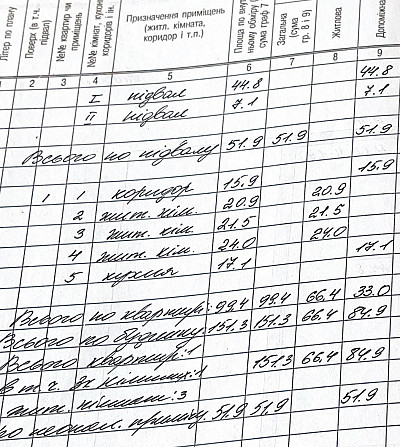 Літер по плану
Поверх (в т.ч. підвал)
№№ квартир чи приміщень
№№ кімнат, кухонь, коридорів і ін.
Призначення приміщень (житл. кімната, коридор і т.п.)
Площа по внутрішньому обміру сума граф 7
Загальна (сума гр. 8 і 9)
Житлова
Допоміжна
1 2 3 4 5 6 7 8 9
I підвал 44.8 44.8
II підвал 7.1 7.1
Всього по підвалу 51.9 51.9 51.9
1 1 коридор 15.9 15.9
2 жит. кім. 20.9 20.9
3 жит. кім. 21.5 21.5
4 жит. кім. 24.0 24.0
5 кухня 17.1 17.1
Всього по квартирі: 99.4 99.4 66.4 33.0
Всього по будинку 151.3 151.3 66.4 84.9
Всього квартир: 1 151.3 66.4 84.9
в т.ч. 3х кімнатн: 1
житл. кімнат: 3
по неосн. 51.9 51.9 51.9